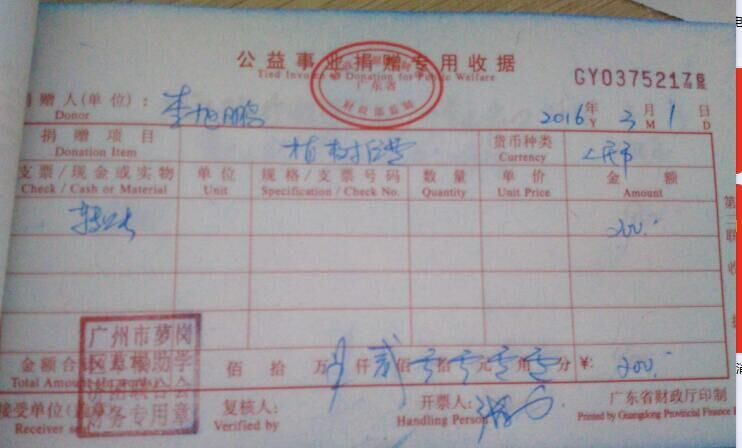 公益事业捐赠专用收据
Tied Invoice of Donation for Public Welfare
广东省
财政部监制
GY03752176
捐赠人(单位): 李旭鹏 2016年 3月 1日
Donor Y M D
捐赠项目 货币种类 人民币
Donation Item Currency
支票/现金或实物 单位 规格/支票号码 数量 单价 金额
Check / Cash or Material Unit Specification / Check No. Quantity Unit Price Amount
转账 200.
第二联
收
广州市萝岗
区 助学
联合会
财务专用章
金额合计 佰 拾 万 仟 贰佰零拾零元零角零分 ¥: 200.
Total Amount
接受单位(盖章) 复核人: 开票人:
Receiver seal Verified by Handling Person
广东省财政厅印制
Printed by Guangdong Provincial Finance